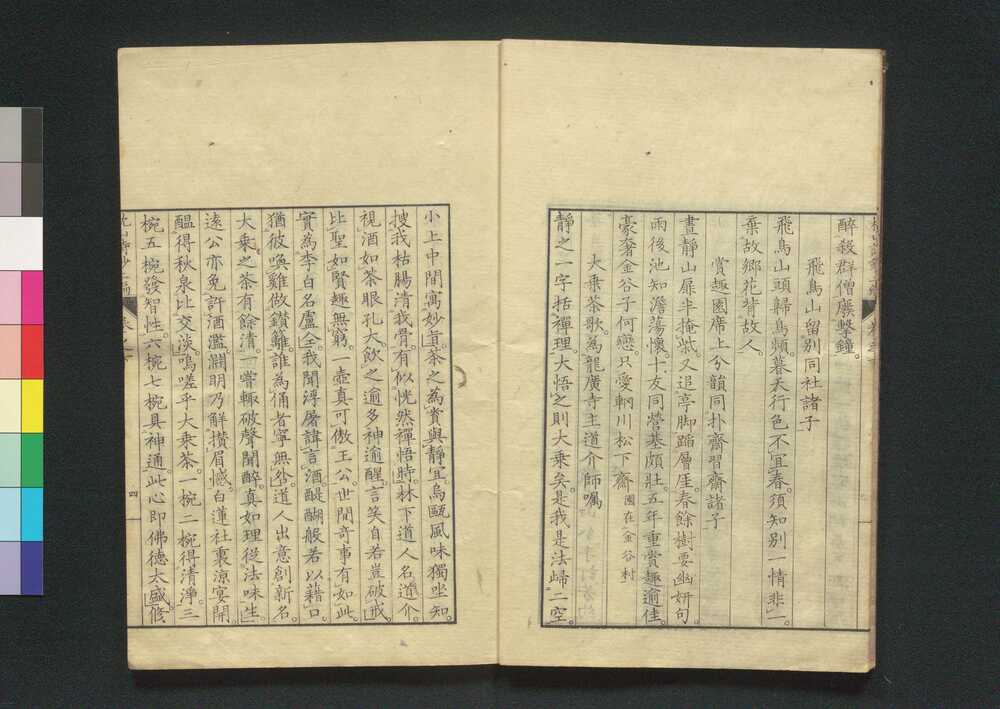 醉殺群僧懶擊鐘。
飛鳥山留別同社諸子
飛鳥山頭歸鳥頻。暮天行色不宜春。須知別一情非一。
棄故鄉花背故人。
賞趣園席上分韻同扑齋習齋諸子
晝靜山扉半掩柴。又追亭脚踏層厓。春餘樹要幽妍句。
雨後池知澹蕩懷。十友同營基頗壯。五年重賞趣逾佳。
豪奢金谷子何戀。只愛輞川松下齋 園在金谷村
大乘茶歌。為龍廣寺主道介師囑
靜之一字括禪理。大悟之則大乘矣。是我是法歸二空。
小上中間寓妙旨。茶之為賞與靜宜。烏甌風味獨唑知。
搜我枯腸清我骨。有似恍然禪悟時。林下道人名道介。
視酒如茶眼孔大。飲之逾多神逾醒。言笑自若豈破戒。
比聖如賢趣無窮。一壺真可傲王公。世間奇事有如此。
實為李白名盧仝。我聞浮屠諱言酒。醍醐般若以藉口。
猶彼喚雞做鑽籬。誰為俑者寧無咎。道人出意創新名。
大乘之茶有餘清。一嘗輙破聲聞醉。真如理從法味生。
遠公亦免許酒濫。淵明乃解攢眉憾。白蓮社裏涼宴開。
醞得秋泉比交淡。嗚嗟乎大乘茶。一椀二椀得清淨。三
椀五椀發智性。六椀七椀具神通。此心即佛德太盛。修
四